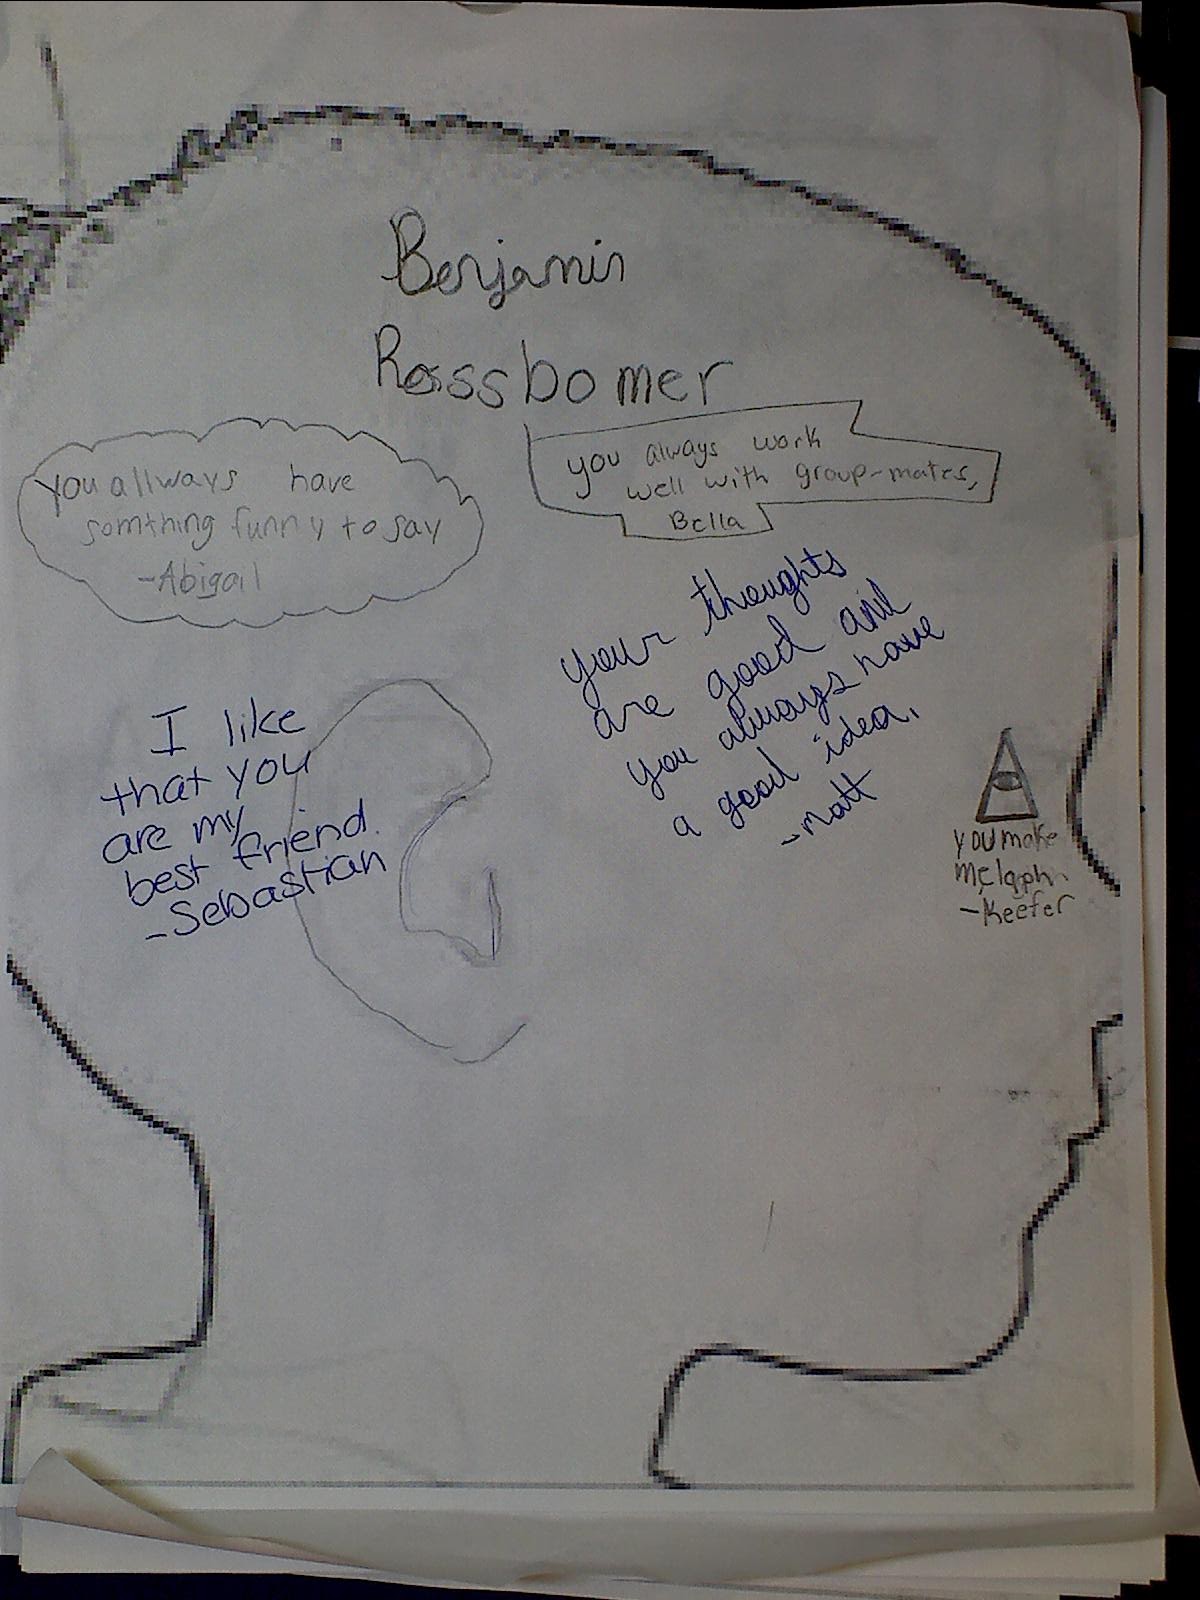 Benjamin
Rossbomer
you allways have
somthing funny to say
-Abigail
you always work
well with group-mates,
Bella
your thoughts
are good and
you always have
a good idea.
-Matt
I like
that you
are my
best friend.
-Sebastian
you make
me laph
-Keefer